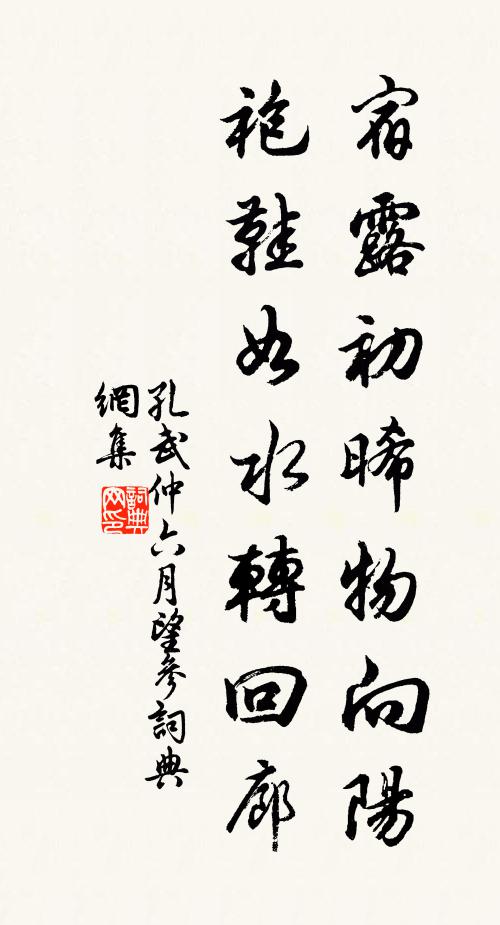 宿露初晞物向陽
袍鞋如水轉回廊
孔武仲六月望參詞典
網集
詞典
网印